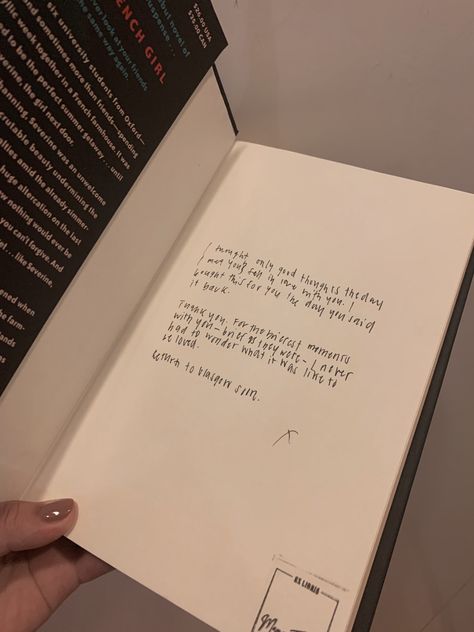 $26.00 USA
$35.00 CAN
but novel of
suspense . . .
ever look at your friends
the same way again.
ENCH GIRL
SIX UNIVERSITY STUDENTS FROM OXFORD—
and sometimes more than friends—spending
yllic week together in a French farmhouse. It was
d to be the perfect summer getaway . . . until
verine, the girl next door.
hanning, Severine was an unwelcome
crutable beauty undermining the
alities amid the already simmer-
huge altercation on the last
w nothing would ever be
you can't forgive. And
et . . . like Severine.
ened when
the farm-
ands
I thought only good thoughts the day
I met you & fell in love with you. I
bought this for you the day you said
it back.
Thank you. For the briefest moments
with you – brief as they were – I never
had to wonder what it was like to
be loved.
Return to Glasgow soon.
x
EX LIBRIS